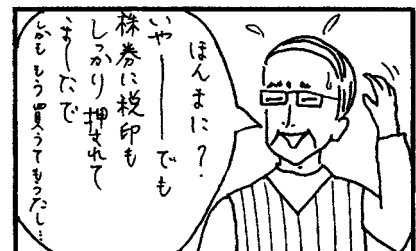 ほんまに？
いやーーでも
株券に税印も
しっかり押されて
ましたで
しかももう買うてもうたし…